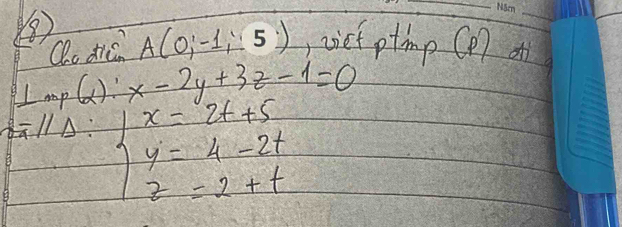 Năm
(8)
Cho điểm A(0;-1; 5), viết ptmp (P) đi
⊥ mp (α): x - 2y + 3z - 1 = 0
và // Δ: { x = 2t + 5
y = 4 - 2t
z = 2 + t